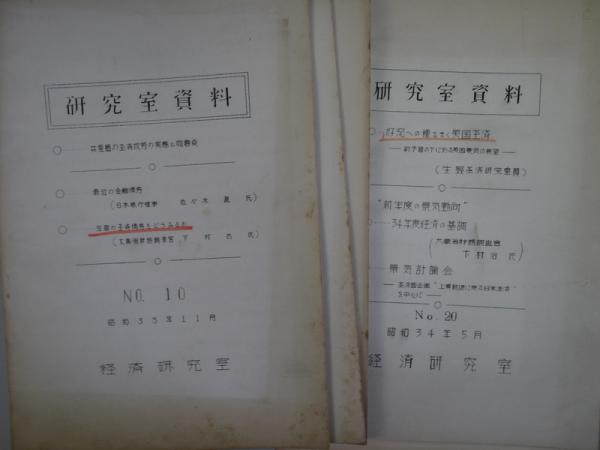 研究室資料
共産圏の経済成長の実態と問題点
最近の金融情勢
(日本銀行理事 佐々木 直 氏)
当面の経済情勢をどうみるか
(大蔵省財務調査官 下村 治 氏)
NO. 10
昭和33年11月
経済研究室
研究室資料
好況への機をきく英国経済
(生野経済研究室員)
"前年度の景気動向"
34年度経済の基調
(大蔵省財務調査官
下村 治 氏)
景気討論会
を中心に
No. 20
昭和34年5月
経済研究室